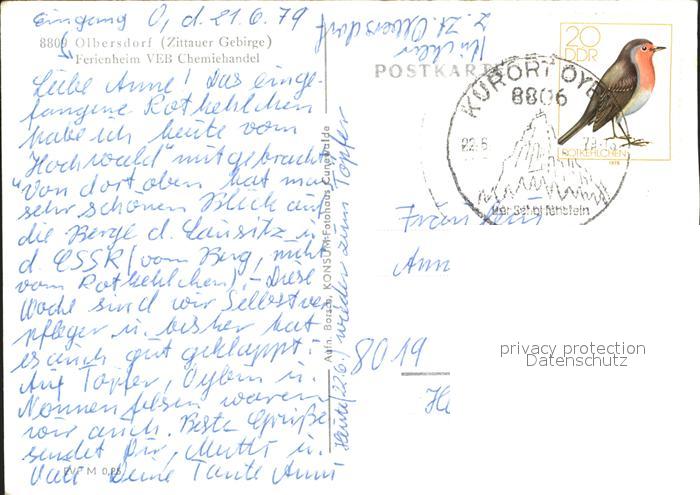 Eingang O, d. 21.6.79
8809 Olbersdorf (Zittauer Gebirge)
Ferienheim VEB Chemiehandel
Liebe Anne! Das einge-
fangene Rotkehlchen
habe ich heute vom
"Hochwald" mitgebracht.
Von dort oben hat man
sehr schönen Blick auf
die Berge d. Lausitz u.
d. ČSSR (vom Berg, nicht
vom Rotkehlchen). - Diese
Woche sind wir Selbstver-
pfleger u. bisher hat
es auch gut geklappt.
Auf Töpfer, Oybin u.
Nonnenfelsen waren
wir auch. Beste Grüße
sendet Dir, Mutti u.
Vati Deine Tante Anni
Heute (22.6.) wieder zum Töpfer
EVP M 0,25
Aufn. Borsch, KONSUM-Fotohaus Cunewalde
z. Zt. Olbersdorf
POSTKARTE
KURORT OYB
8806
Der Scharfenstein
20
DDR
ROTKEHLCHEN
1979
Fräulein
Ann
8019
privacy protection
Datenschutz